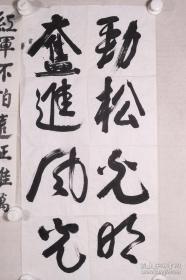 勁松光明
奮進風光
紅軍不怕遠征難萬